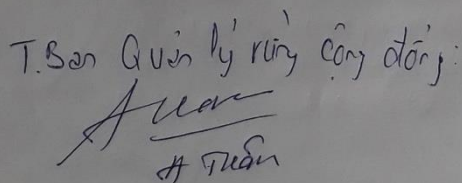 T. Ban Quản lý rừng cộng đồng:
A Tuân